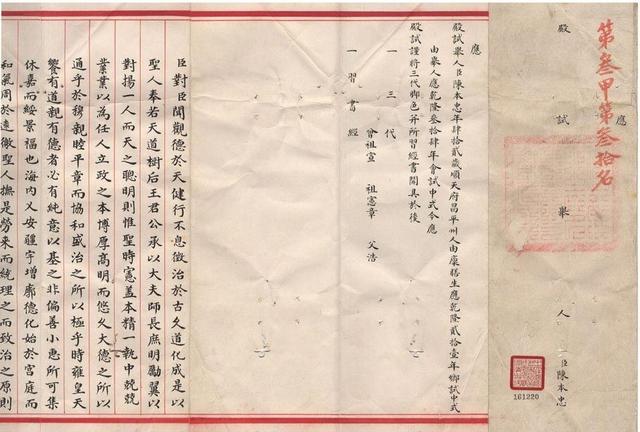 第叁甲第叁拾名
應
殿試舉人臣陳本忠
161220
應
殿試舉人臣陳本忠年肆拾貳歲順天府昌平州人由廩膳生應乾隆貳拾壹年鄉試中式
由舉人應乾隆叁拾肆年會試中式今應
殿試謹將三代腳色并所習經書開具於後
一三代
曾祖宣 祖憲章 父浩
一習書經
臣對臣聞觀德於天健行不息徵治於古久道化成是以
聖人奉若天道樹后王君公承以大夫師長庶明勵翼以
對揚一人而天之聰明則惟聖時憲蓋本精一執中兢兢
業業以為任人立政之本博厚高明而悠久大德之所以
通乎於穆親睦平章而協和盛治之所以極乎時雍皇天
饗有道親有德者必有純意以基之非偏善小惠所可集
休嘉而綏景福也海內乂安疆宇增廓德化始於宮庭而
和氣周於遠徼聖人撫是勞來而統理之而致治之原則